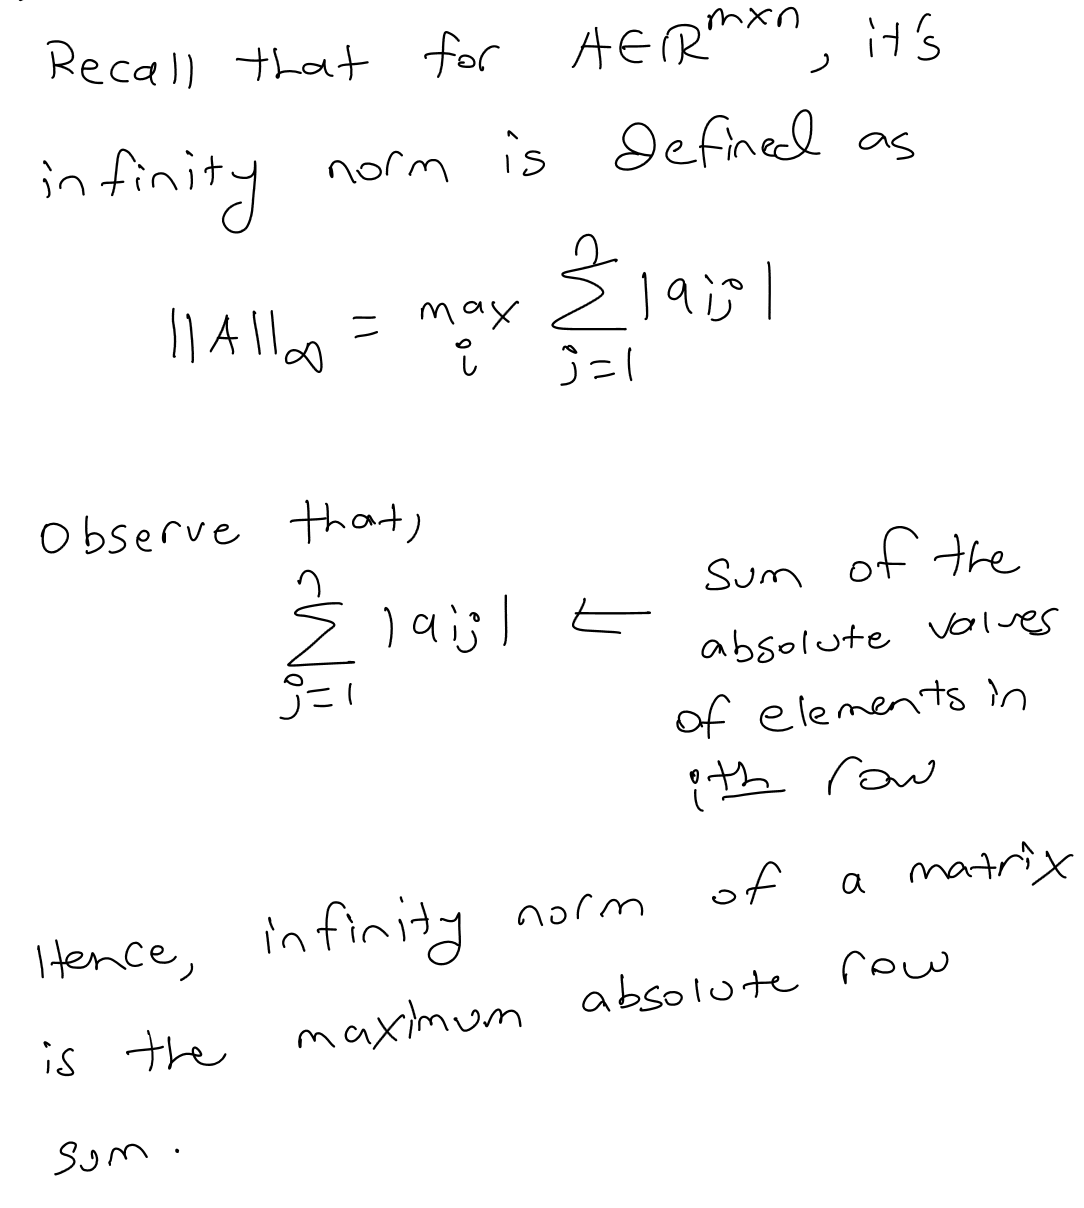 Recall that for A∈ℝ^{m×n}, it's
infinity norm is defined as
||A||_∞ = max_i ∑_{j=1}^{n} |a_{ij}|
Observe that,
∑_{j=1}^{n} |a_{ij}| ← sum of the
absolute values
of elements in
ith row
Hence, infinity norm of a matrix
is the maximum absolute row
sum.